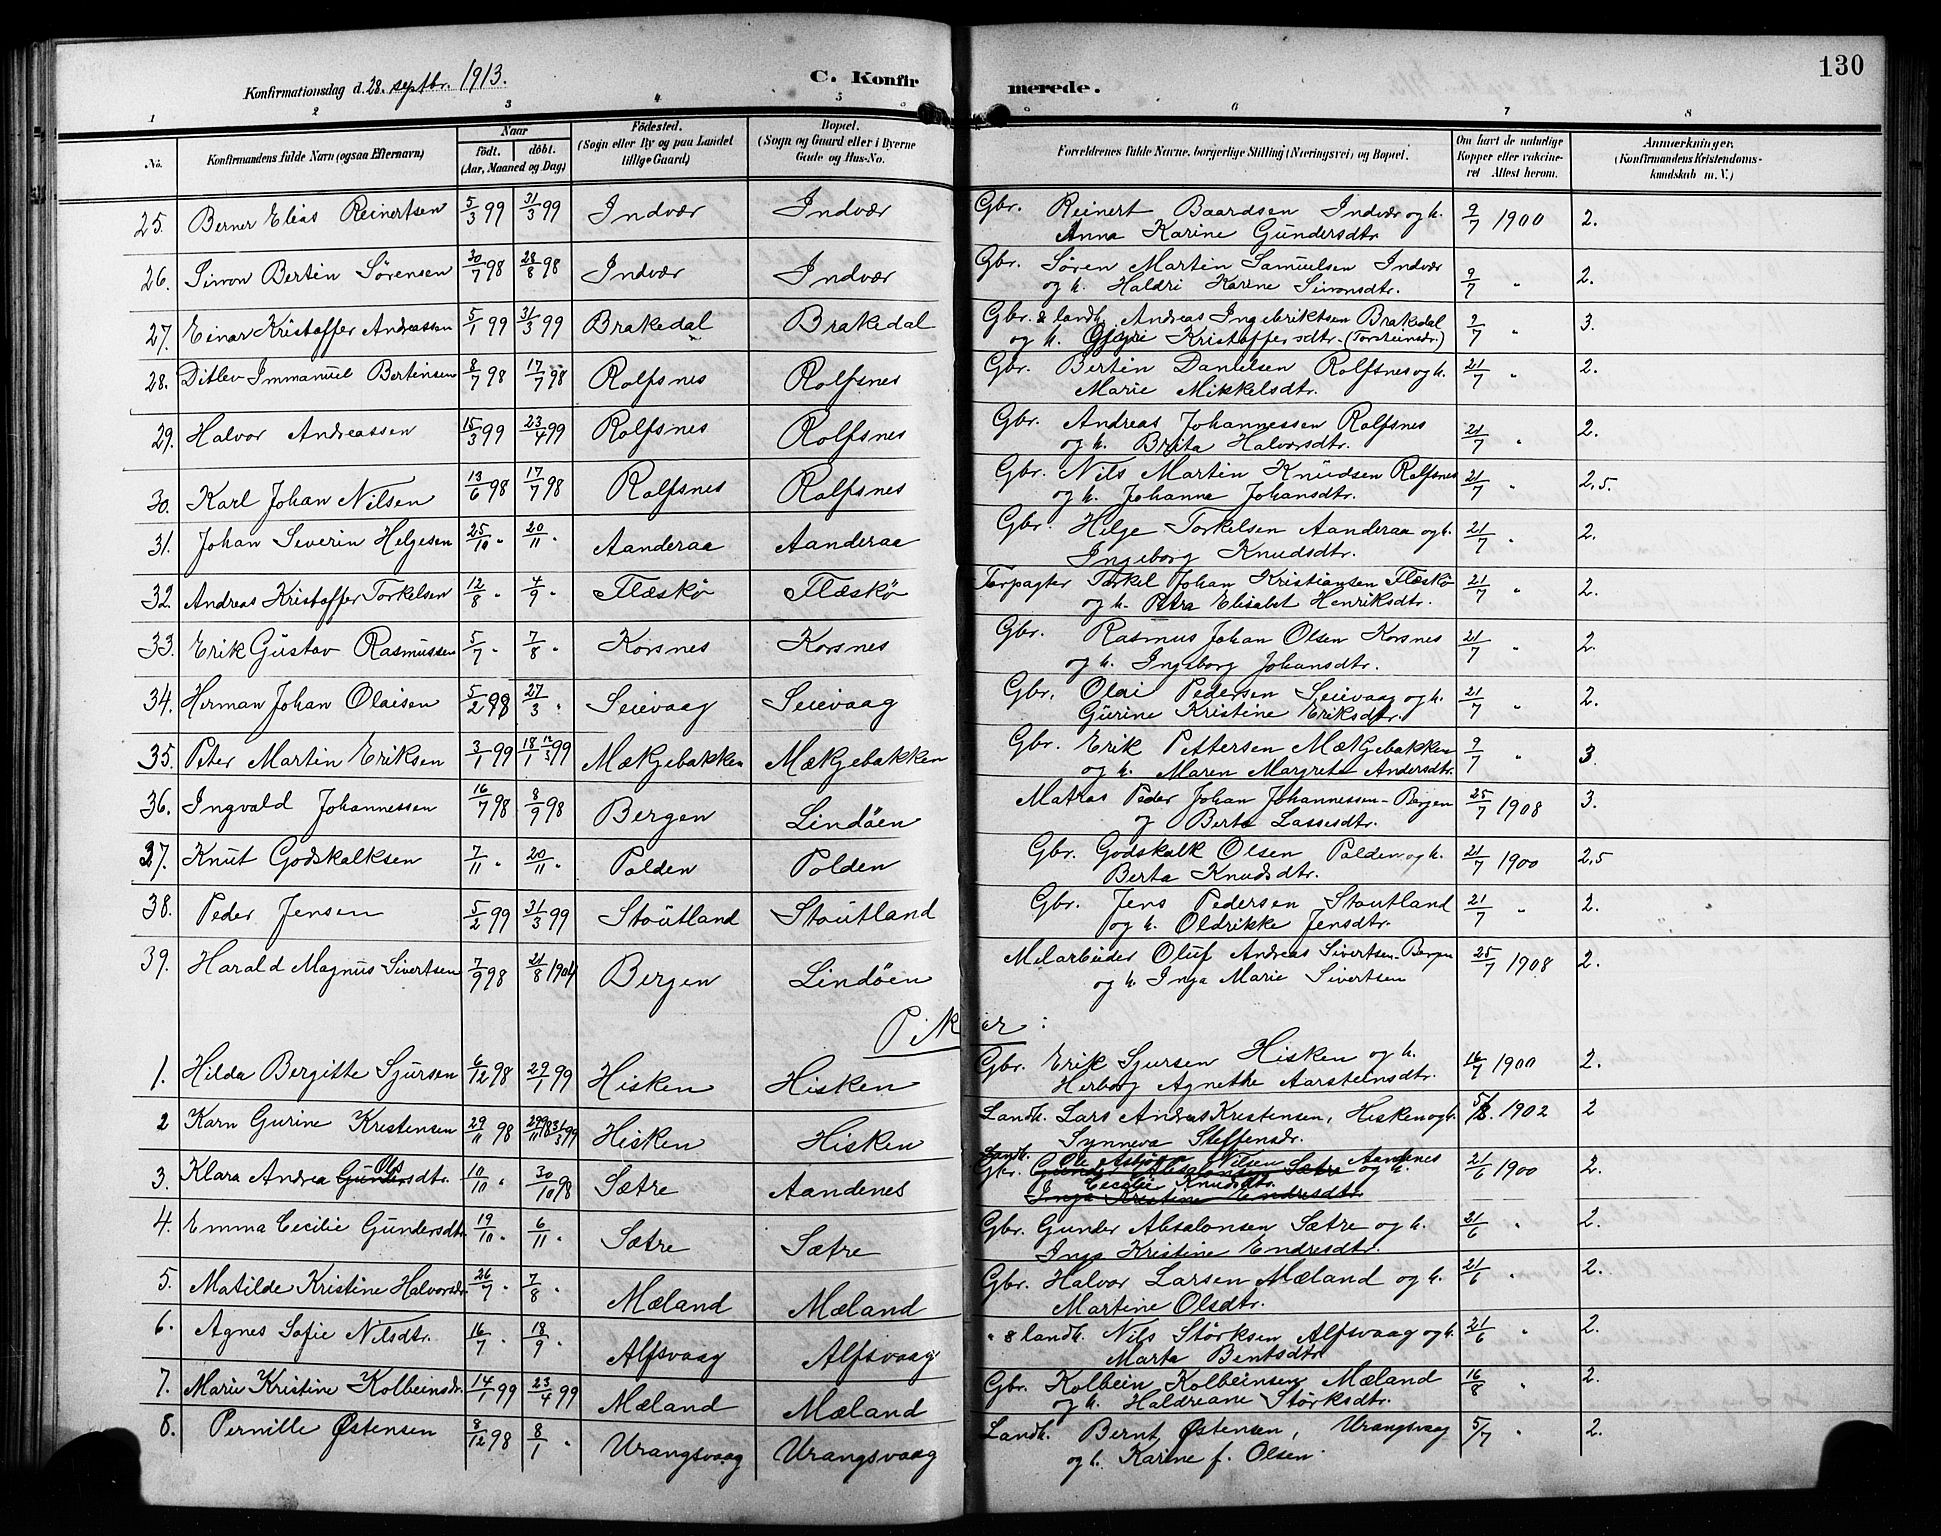 130
Konfirmationsdag d. 28. septbr. 1913.
C. Konfirmerede.
1 2 3 4 5 6 7 8
No. Konfirmandens fulde Navn (ogsaa Efternavn) Naar födt. döbt. (Aar, Maaned og Dag) Födested. (Sogn eller By og paa Landet tillige Gaard) Bopæl. (Sogn og Gaard eller i Byerne Gade og Hus-No. Forældrenes fulde Navne, borgerlige Stilling (Næringsvei) og Bopæl. Om havt de naturlige Kopper eller vakcineret. Attest herom. Anmærkninger. (Konfirmandens Kristendomskundskab m. V.)
25. Berner Elias Reinertsen 5/3 99 31/3 99 Indvær Indvær Gbr. Reinert Baardsen Indvær og h. 9/7 1900 2.
Anna Karine Gundersdtr.
26. Simon Bertin Sørensen 30/7 98 28/8 98 Indvær Indvær Gbr. Søren Martin Samuelsen Indvær 9/7 " 2.
og h. Haldri Karine Simonsdtr.
27. Einar Kristoffer Andreassen 5/1 99 31/3 99 Brakedal Brakedal Gbr. & landh. Andreas Ingebriktsen Brakedal 9/7 " 3.
og h. Kristoffersdtr. (Torsteinsdr.)
28. Ditlev Immanuel Bertinsen 8/7 98 17/7 98 Rolfsnes Rolfsnes Gbr. Bertin Danielsen Rolfsnes og h. 21/7 " 2.
Marie Mikkelsdtr.
29. Halvor Andreassen 15/3 99 23/4 99 Rolfsnes Rolfsnes Gbr. Andreas Johannessen Rolfsnes 21/7 " 2.
og h. Brita Halvorsdtr.
30. Karl Johan Nilsen 13/6 98 17/7 98 Rolfsnes Rolfsnes Gbr. Nils Martin Knudsen Rolfsnes 21/7 " 2,5.
og h. Johanna Johansdtr.
31. Johan Severin Helgesen 25/10 " 20/11 " Aanderaa Aanderaa Gbr. Helge Torkelsen Aanderaa og h. 21/7 " 2.
Ingeborg Knudsdtr.
32. Andreas Kristoffer Torkelsen 12/8 " 4/9 " Flæskø Flæskø Forpagter Torkel Johan Kristiansen Flæskø 21/7 " 2.
og h. Petra Elisabet Henriksdtr.
33. Erik Gustav Rasmussen 5/7 " 7/8 " Korsnes Korsnes Gbr. Rasmus Johan Olsen Korsnes 21/7 " 2.
og h. Ingeborg Johansdtr.
34. Herman Johan Olaisen 5/2 98 27/3 " Seievaag Seievaag Gbr. Olai Pedersen Seievaag og h. 21/7 " 2.
Gurine Kristine Eriksdtr.
35. Peter Martin Eriksen 3/1 99 18/1 12/3 99 Mækjebakken Mækjebakken Gbr. Erik Pettersen Mækjebakken 9/7 " 3.
og h. Maren Margrete Andersdtr.
36. Ingvald Johannessen 16/7 98 8/9 98 Bergen Lindøen Matros Peder Johan Johannessen - Bergen 25/7 1908 3.
og Berta Lassesdtr.
37. Knut Godskalksen 7/11 " 20/11 " Polden Polden Gbr. Godskalk Olsen Polden og h. 21/7 1900 2,5
Berta Knudsdtr.
38. Peder Jensen 5/2 99 31/3 99 Stoutland Stoutland Gbr. Jens Pedersen Stoutland 21/7 " 2.
og h. Oldrikke Jensdtr.
39. Harald Magnus Sivertsen 7/9 98 21/8 1904 Bergen Lindøen Melarbeider Oluf Andreas Sivertsen - Bergen 25/7 1908 2.
og h. Inga Marie Sivertsen
Piker :
1. Hilda Bergitte Sjursen 6/12 98 29/1 99 Hisken Hisken Gbr. Erik Sjursen Hisken og h. 16/7 1900 2.
Herborg Agnethe Aarsteinsdtr.
2 Karn Gurine Kristensen 29/11 98 29/11 98 31/3 99 Hisken Hisken Landh. Lars Andreas Kristensen, Hisken og h. 5/8. 1902 2
Synneva Steffensdr.
3. Klara Andrea Gunder Olsdtr. 10/10 " 30/10 98 Sætre Aandenes Landh. Ole Asbjørn Nilsen Aandenes
Gbr. Gunder Absalonsen Sætre og h. 21/6 1900 2.
Cecilie Knudsdtr.
Inga Kristine Endresdtr.
4. Emma Cecilie Gundersdtr. 19/10 " 6/11 " Sætre Sætre Gbr. Gunder Absalonsen Sætre og h. 21/6 " 2.
Inga Kristine Endresdtr.
5. Matilde Kristine Halvorsdr. 26/7 " 7/8 " Mæland Mæland Gbr. Halvor Larsen Mæland og h. 21/6 " 2.
Martine Olsdtr.
6. Agnes Sofie Nilsdtr. 16/7 " 18/9 " Alfsvaag Alfsvaag " & landh. Nils Størksen Alfsvaag og h. 21/6 " 2.
Marta Bentsdtr.
7. Marie Kristine Kolbeinsdr. 14/1 99 23/4 99 Mæland Mæland Gbr. Kolbein Kolbeinsen Mæland 16/8 " 2.
og h. Haldriane Størksdtr.
8. Pernille Østensen 8/12 98 8/1 " Urangsvaag Urangsvaag Landh. Bernt Østensen, Urangsvaag 5/7 " 2.
og h. Karine f. Olsen.